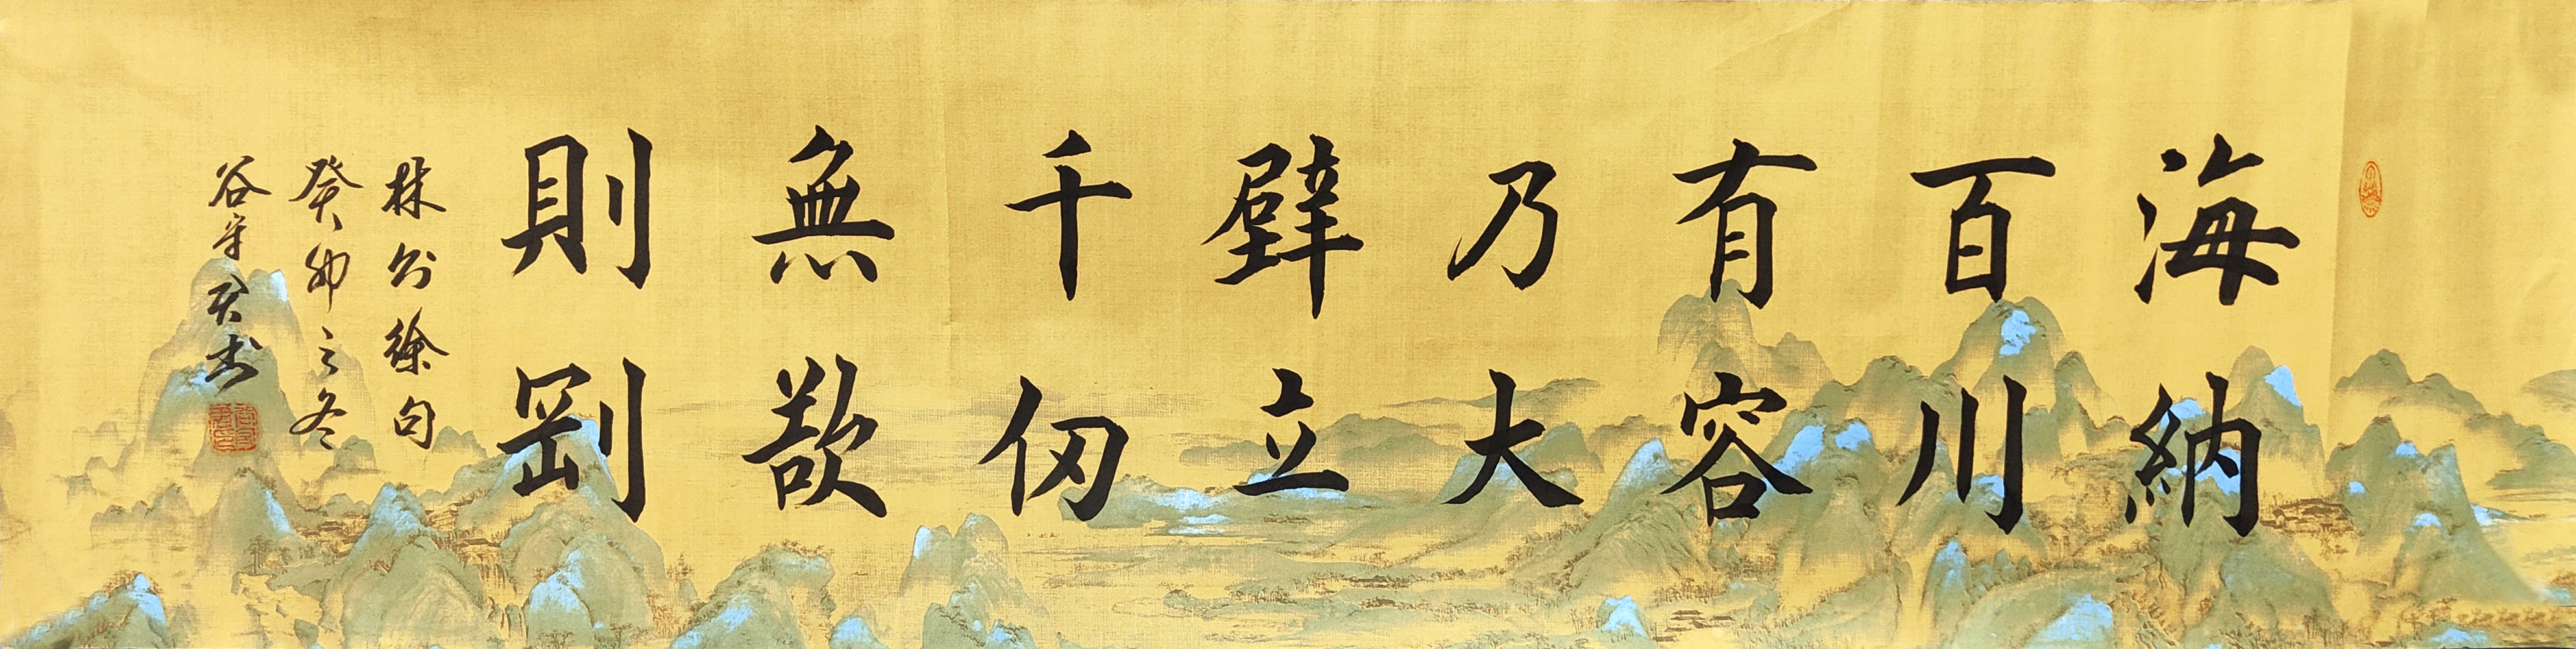 海納
百川
有容
乃大
壁立
千仞
無欲
則剛
林则徐句
癸卯之冬
谷守君书